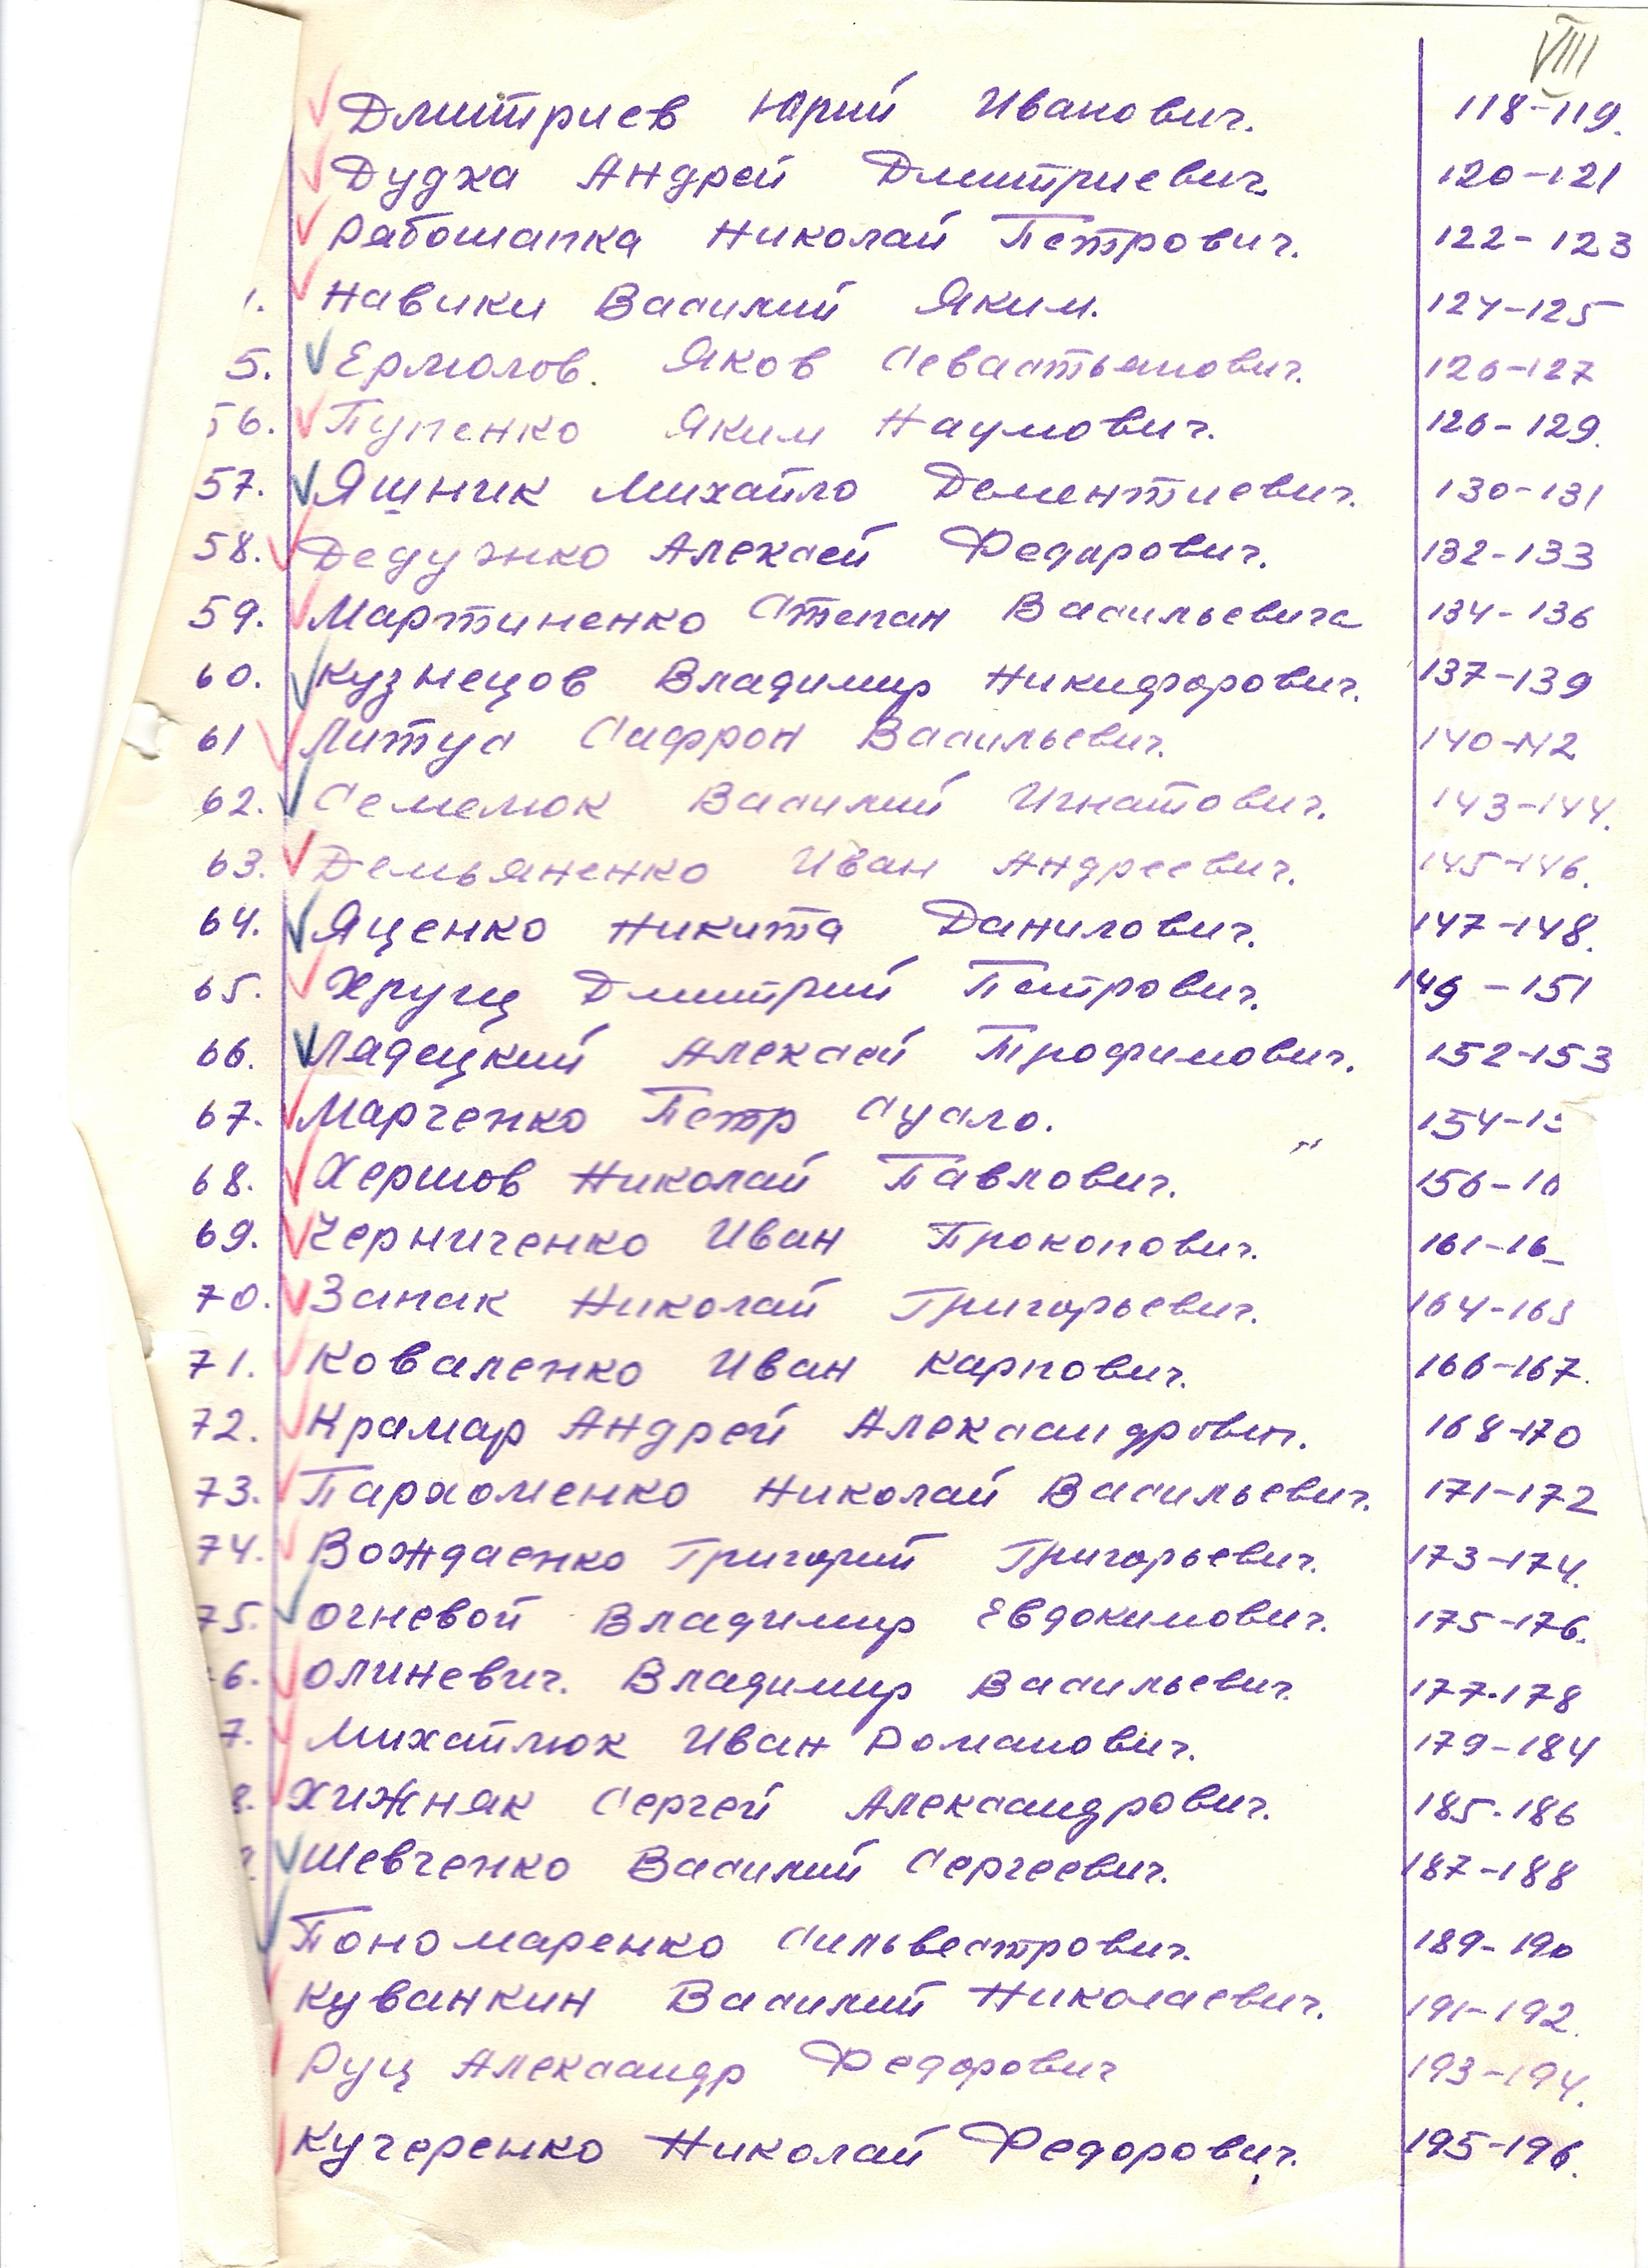 VIII
Дмитриев Юрий Иванович. 118-119.
Дудка Андрей Дмитриевич 120-121
Рабошапка Николай Петрович. 122-123
Навики Василий Яким. 124-125
5. Ермолов. Яков Севастьянович. 126-127
56. Пупенко Яким Наумович. 128-129.
57. Яшник Михайло Дементиевич. 130-131
58. Алексей Федорович. 132-133
59. Мартиненко Степан Васильевича 134-136
60. Кузнецов Владимир Никифорович. 137-139
61 Митус Сафрон Васильевич. 140-142
62. Семелюк Василий Игнатович. 143-144.
63. Демьяненко Иван Андреевич. 145-146.
64. Яценко Никита Данилович. 147-148.
65. Хрущ Дмитрий Петрович. 149-151
66. Ладецкий Алексей Трофимович. 152-153
67. Марченко Петр 154-15
68. Хершов Николай Павлович. 156-16
69. Черниченко Иван Прокопович. 161-16
70. Запак Николай Григорьевич. 164-165
71. Коваленко Иван Карпович. 166-167.
72. Крамар Андрей Александрович. 168-170
73. Пархоменко Николай Васильевич. 171-172
74. Вождаенко Григорий Григорьевич. 173-174.
75. Огневой Владимир Евдокимович. 175-176.
6. Олиневич. Владимир Васильевич 177-178
7. Михайлюк Иван Романович. 179-184
8. Хижняк Сергей Александрович. 185-186
Шевченко Василий Сергеевич. 187-188
Пономаренко Сильвестрович. 189-190
Куванкин Василий Николаевич. 191-192.
Руц Александр Федорович 193-194.
Кучеренко Николай Федорович. 195-196.